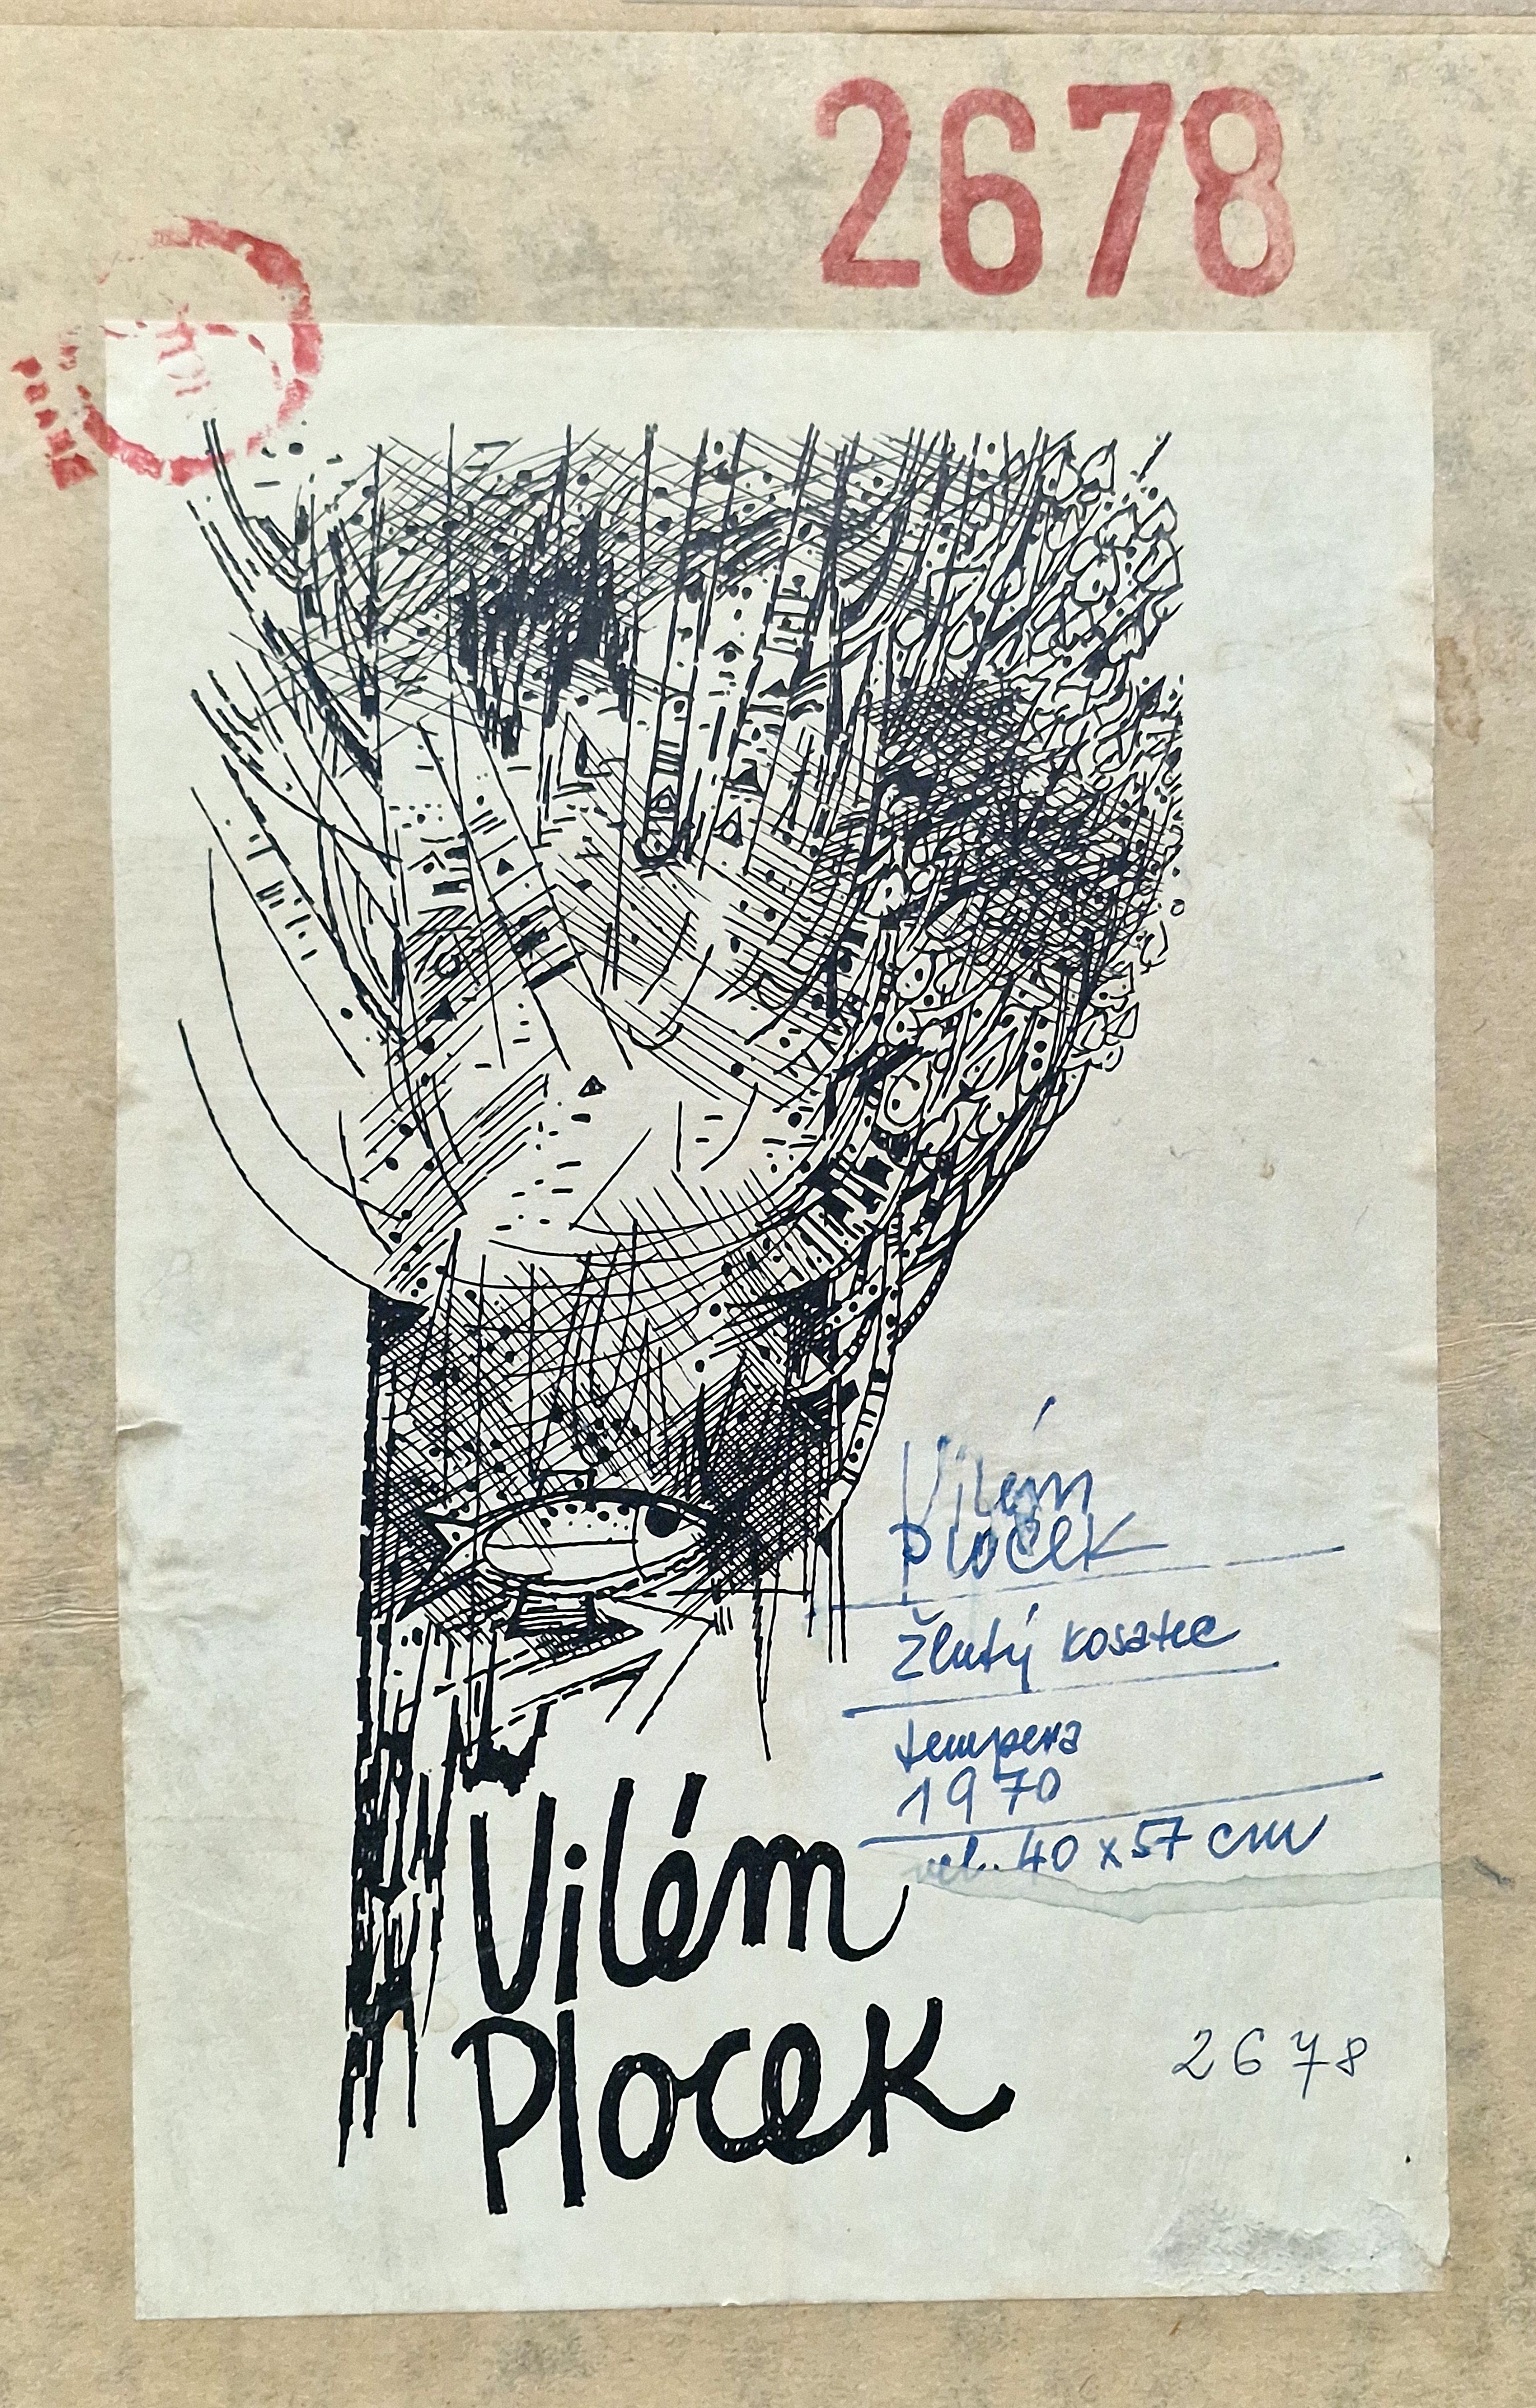 2678
Vilém
Plocek
Žlutý kosatec
tempera
1970
vel. 40 x 57 cm
Vilém
Plocek
2678